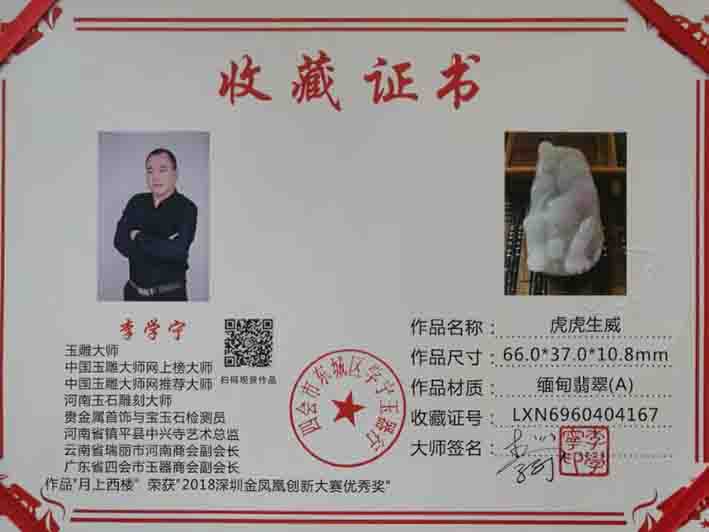 收藏证书
李学宁
玉雕大师
中国玉雕大师网上榜大师
中国玉雕大师网推荐大师
河南玉石雕刻大师
贵金属首饰与宝玉石检测员
河南省镇平县中兴寺艺术总监
云南省瑞丽市河南商会副会长
广东省四会市玉器商会副会长
作品"月上西楼" 荣获"2018深圳金凤凰创新大赛优秀奖"
扫码观赏作品
四会市东城区学宁玉器行
作品名称: 虎虎生威
作品尺寸: 66.0*37.0*10.8mm
作品材质: 缅甸翡翠(A)
收藏证号: LXN6960404167
大师签名:
李學寧印